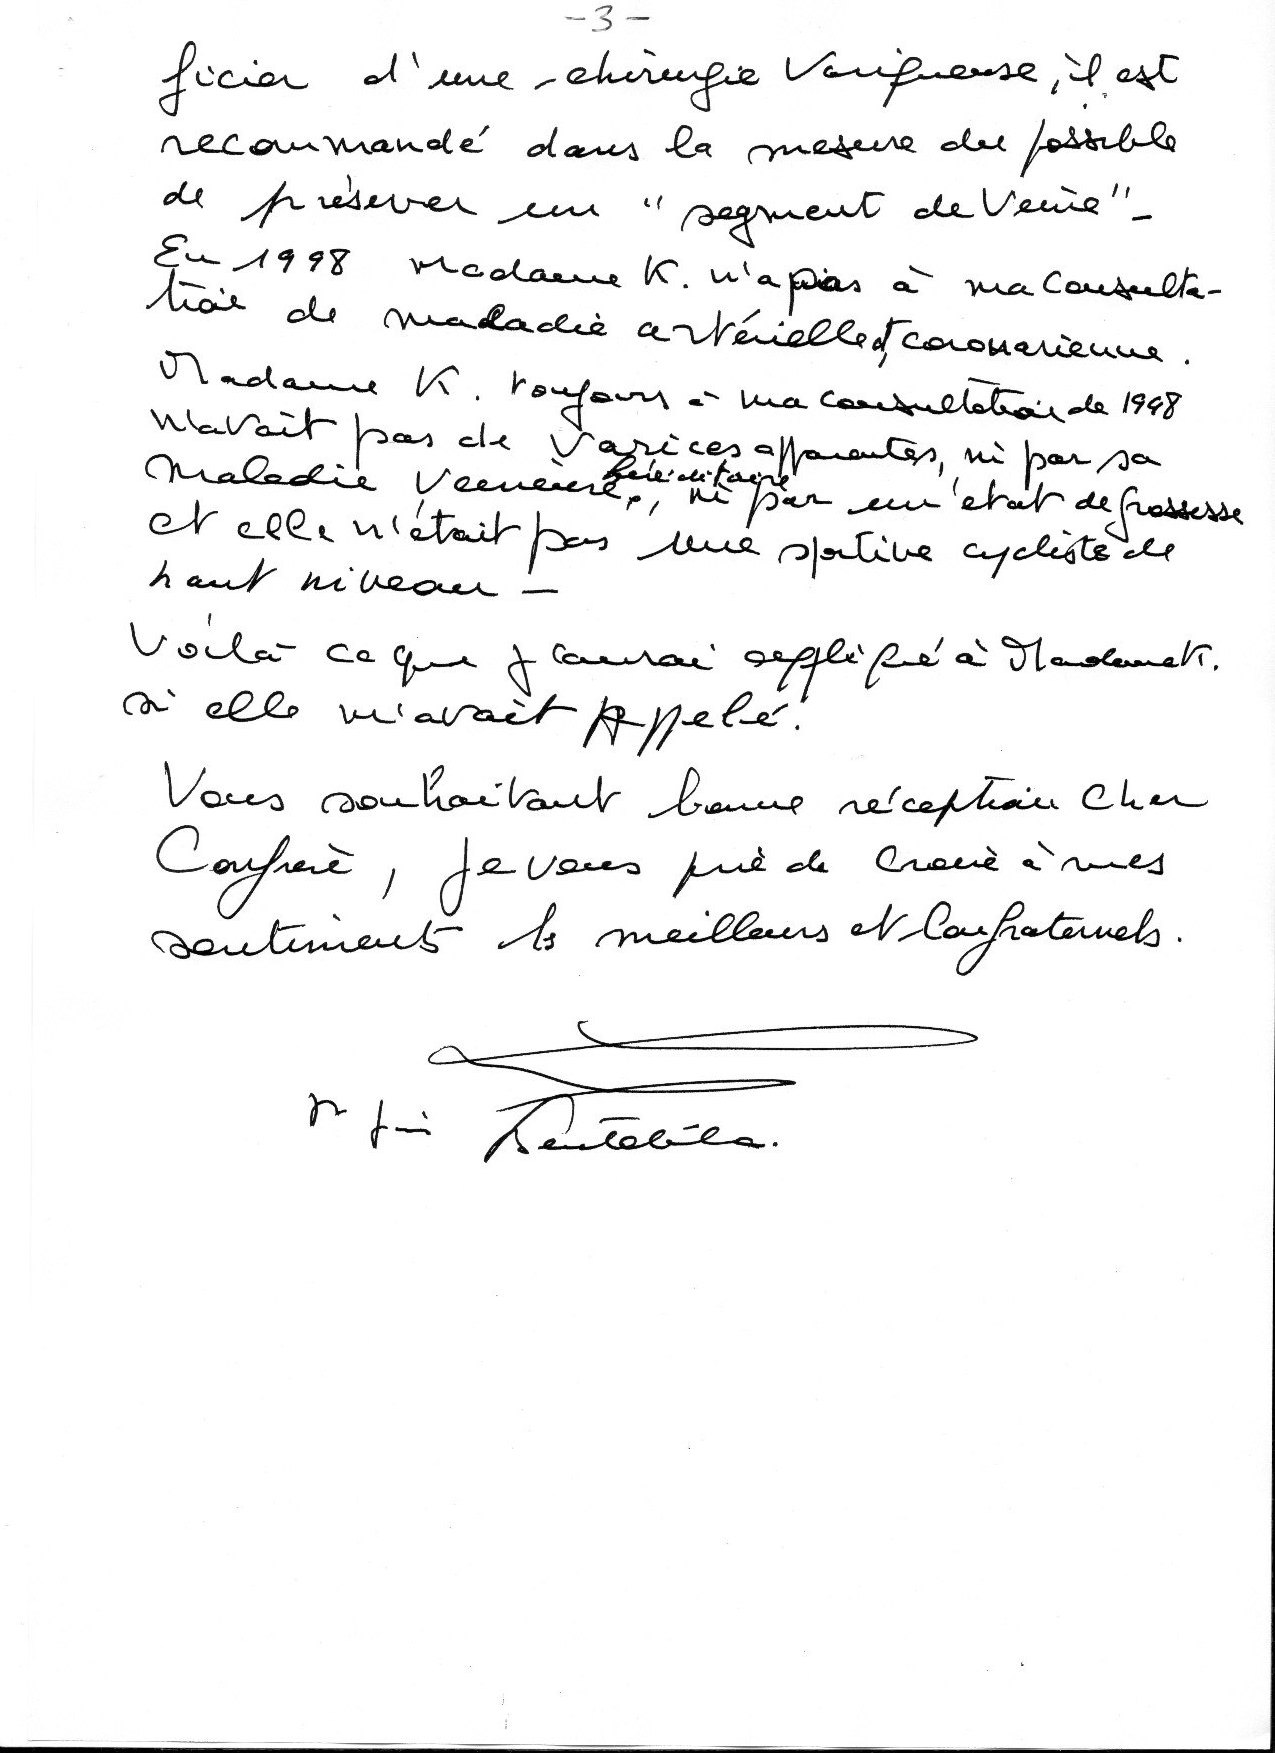 -3-
ficier d'une chirurgie Variqueuse, il est
recommandé dans la mesure du possible
de préserver un "segment de Veine" -
En 1998 Madame K. n'a pas à ma Consulta-
tion de maladie artérielle et coronarienne.
Madame K. toujours à ma consultation de 1998
n'avait pas de Varices apparentes, ni par sa
Maladie Veineuse héréditaire, ni par un état de grossesse
et elle n'était pas une sportive cycliste de
haut niveau -
Voilà ce que j'aurai expliqué à Madame K.
si elle m'avait Appelé.
Vous souhaitant bonne réception Cher
Confrère, je vous prie de croire à mes
sentiments ls meilleurs et Confraternels.
Dr